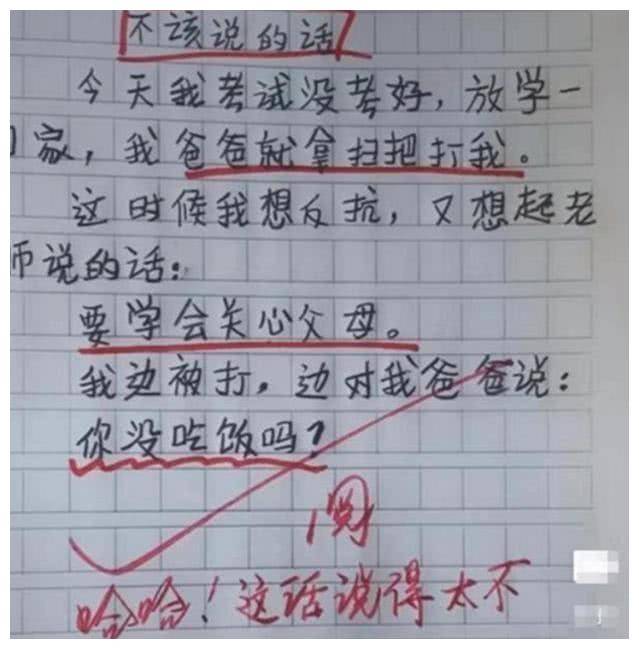 不该说的话
今天我考试没考好，放学一
家，我爸爸就拿扫把打我。
这时候我想反抗，又想起老
师说的话：
要学会关心父母。
我边被打，边对我爸爸说：
你没吃饭吗？
阅
哈哈！这话说得太不